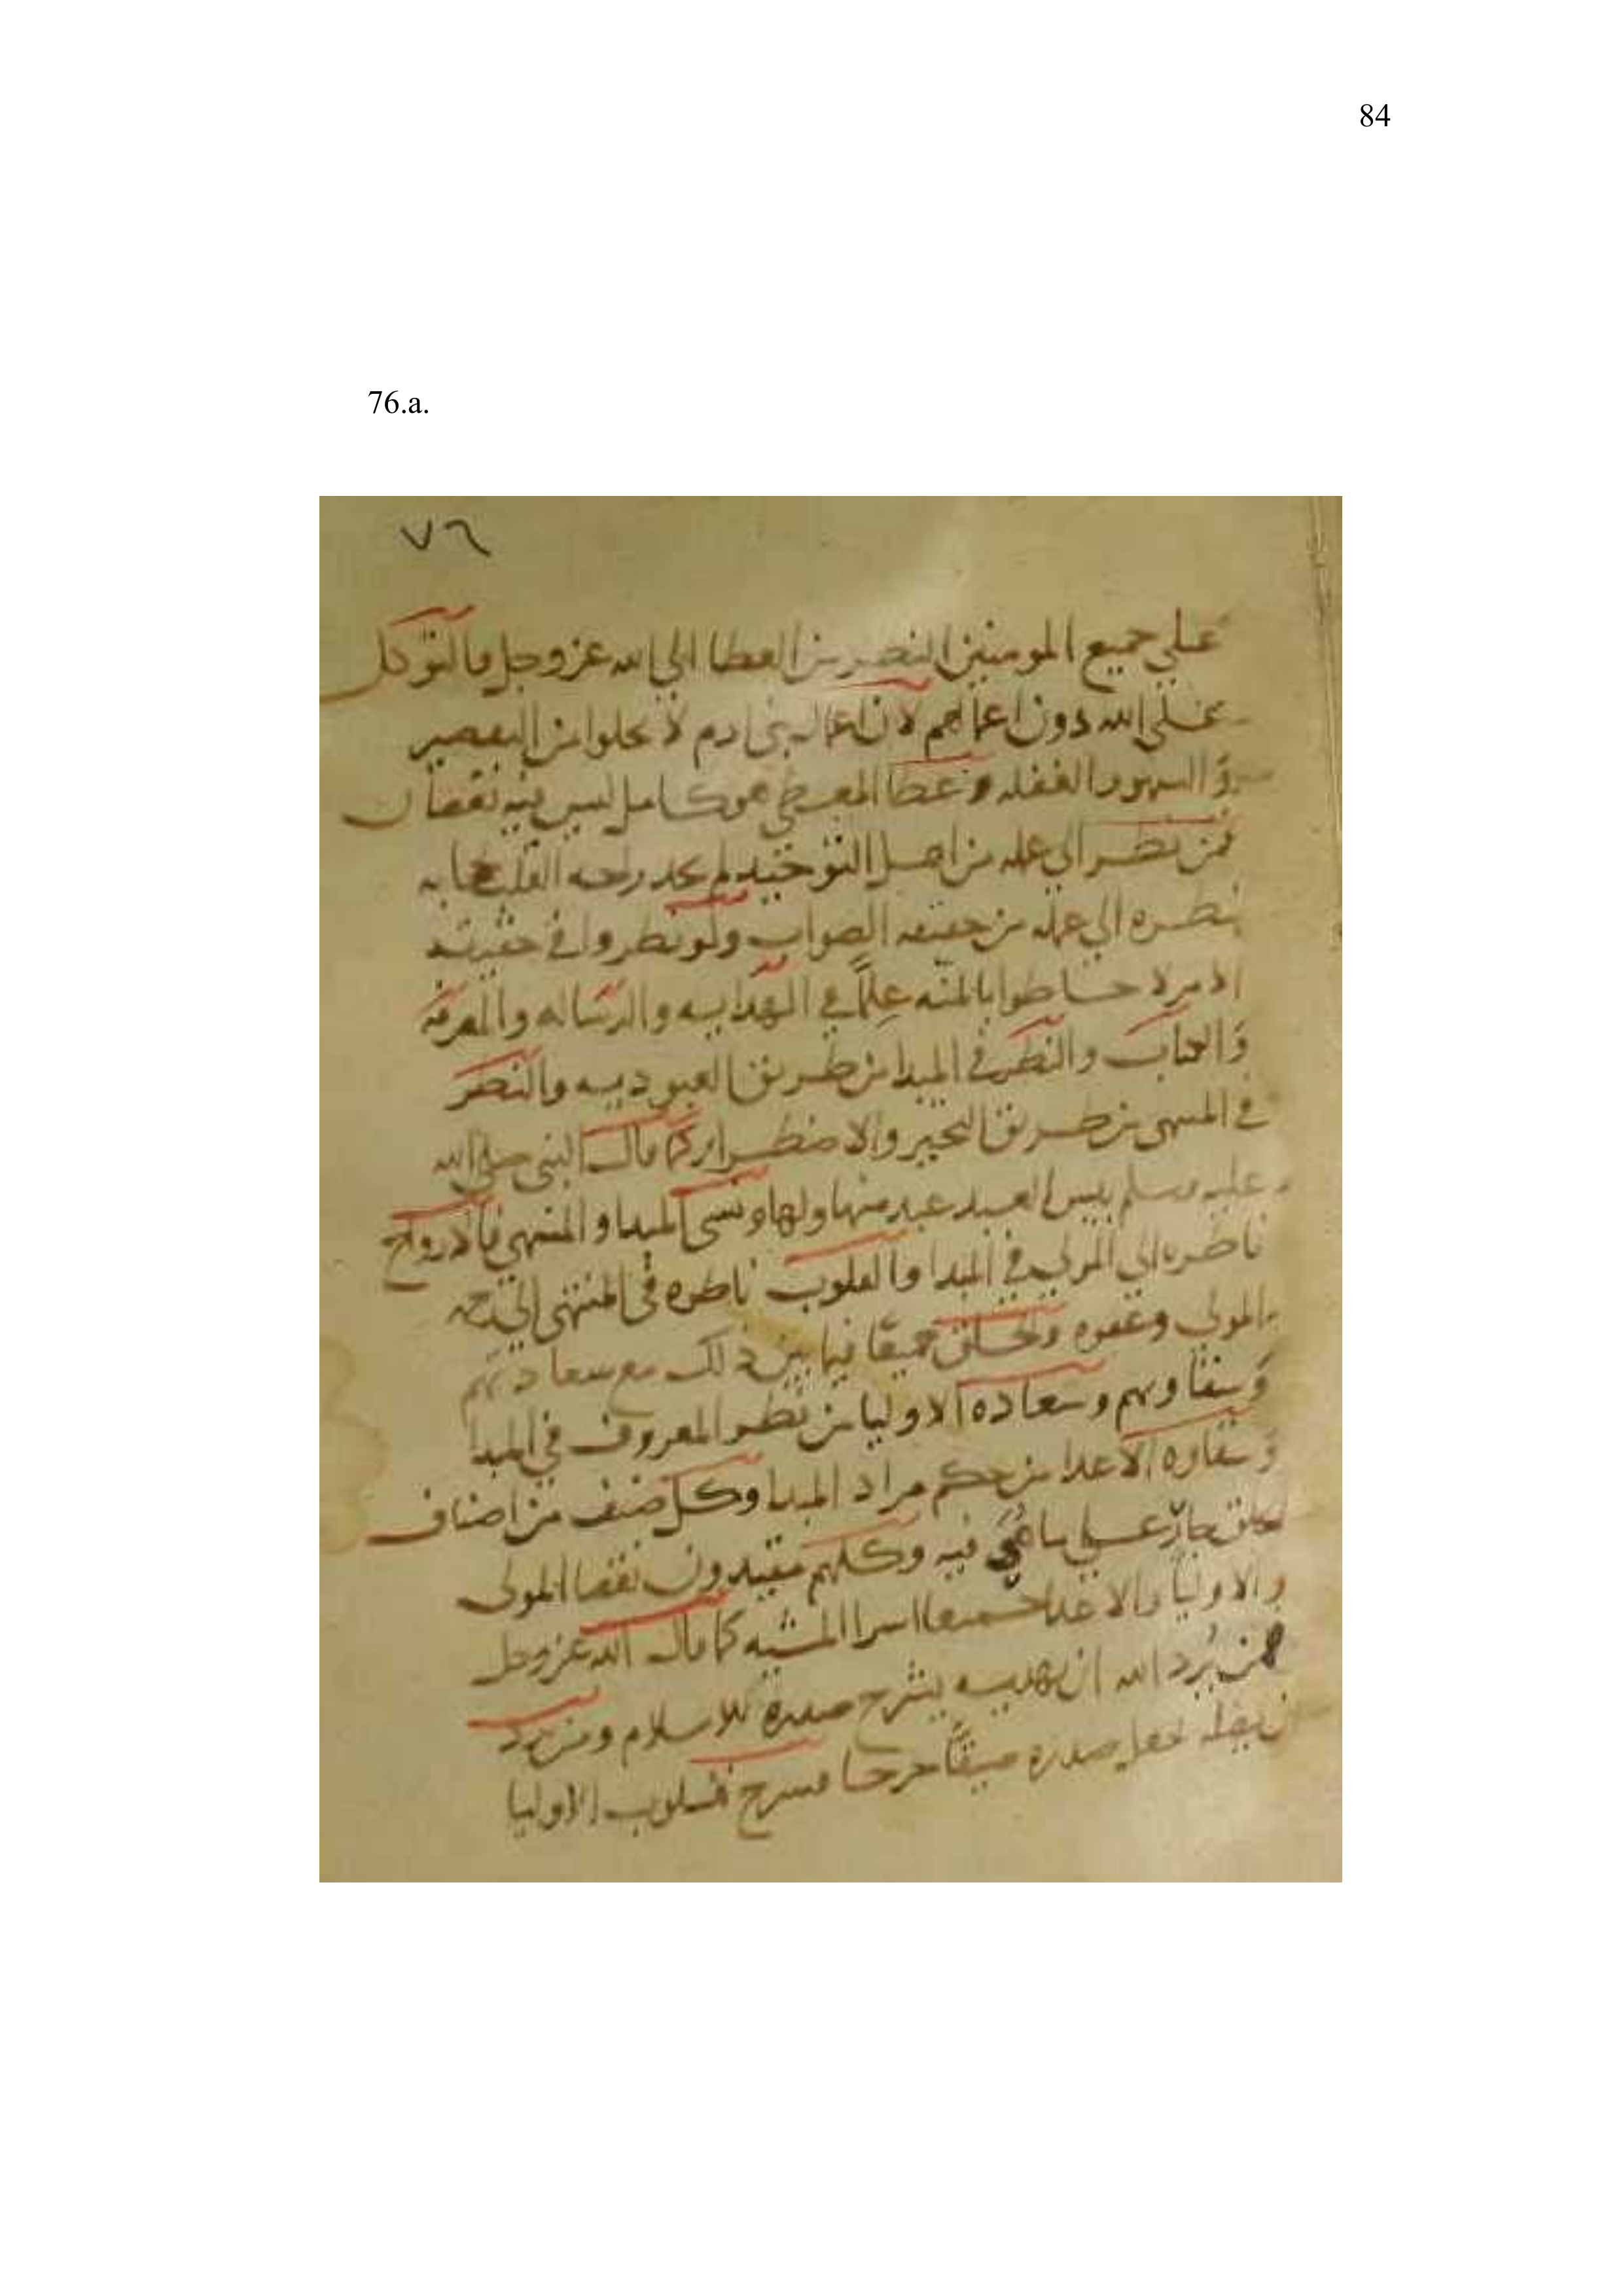 84
76.a.
٧٦
علي جميع المومنين النضر من العطا الي الله عز وجل والتوكل
علي الله دون اعمالهم لان اعمال بني ادم لا تخلوا من التقصير
والسهو والغفله وعطا المعطي هو كامل ليس فيه نقصان
فمن نظر الي عمله من اهل التوحيد لم يجد راحه القلب
نظره الي عمله من حقيقه الصواب ولو نظروا في حقيقه
الامر لاحاطوا بالمنه علمًا في الهدايه والرساله والمعرفه
والكتاب والنظر في المبدا من طريق العبوديه والنضر
في المنتهى من طريق التحير والاضطرار كما قال النبي صلي الله
عليه وسلم بيس العبد عبد سها ولها ونسى المبدا والمنتهى فالارواح
ناظره الي المولي في المبدا والقلوب ناظره في المنتهى الي رحمه
المولي وعفوه والخلق جميعًا فيما بين ذلك مع سعادتهم
وشقاوتهم وسعاده الاوليا من نظر المعروف في المبدا
وشقاوه الاعدا من حكم مراد المبدا وكل صنف من اصناف
الخلق جار علي ما فيه وكلهم مقيدون المولى
والاوليا والاعدا جميعا اسرا المشيه كما قال الله عز وجل
فمن يُرد الله ان يهديه يشرح صدره للاسلام ومن يرد
ان يضله يجعل صدره ضيقًا حرجا فشرح قلوب الاوليا